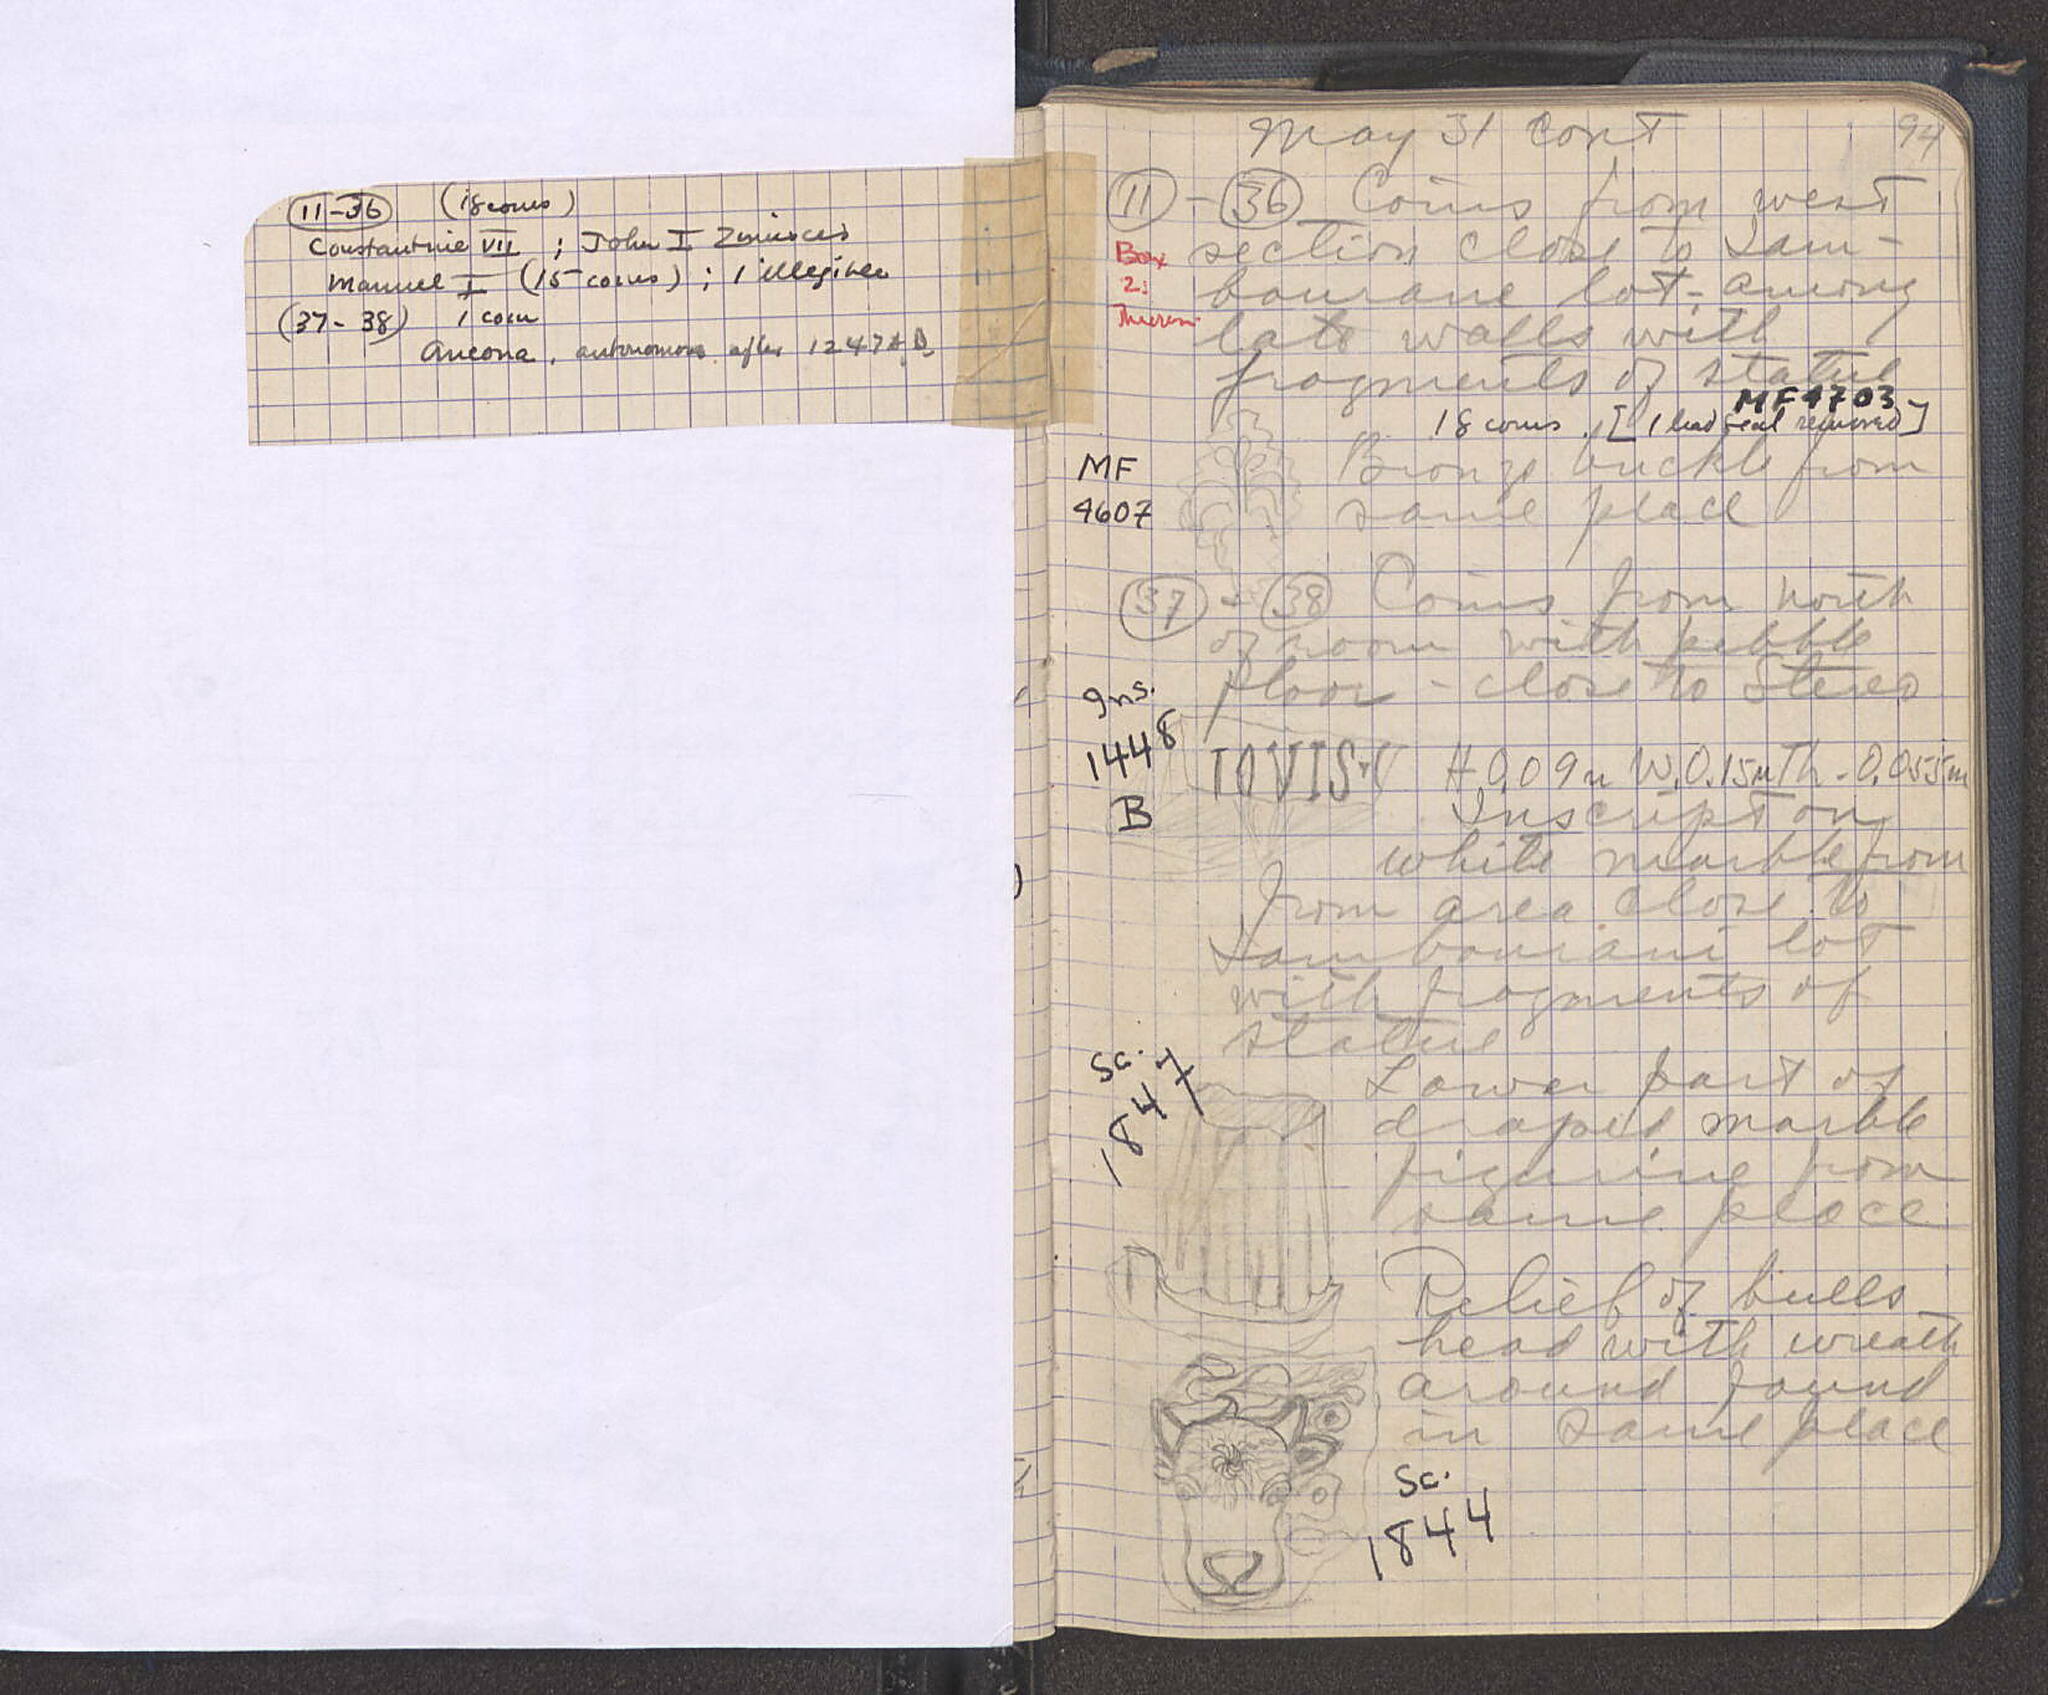 (11-36) (18 coins)
Constantine VII ; John I Zimisces
Manuel I (15 coins) ; 1 illegible
(37-38) 1 coin
Ancona, autonomous after 1247 A.D.
May 31 cont 94
(11) - (36) Coins from west
Box section close to Lam-
2: bourane lot - among
late walls with
fragments of statue
MF 4703
18 coins. [1 lead seal removed]
MF Bronze buckle from
4607 same place
(37) - (38) Coins from north
of room with pebble
floor - close to Stereo
Ins.
1448 IOVIS·V H 0.09m W. 0.15m Th - 0.055m
B Inscription
white marble from
from area close to
Lambouriani lot
with fragments of
statue
Sc. 1847
Lower part of
draped marble
figurine from
same place
Relief of bulls
head with wreath
around found
in same place
Sc.
1844